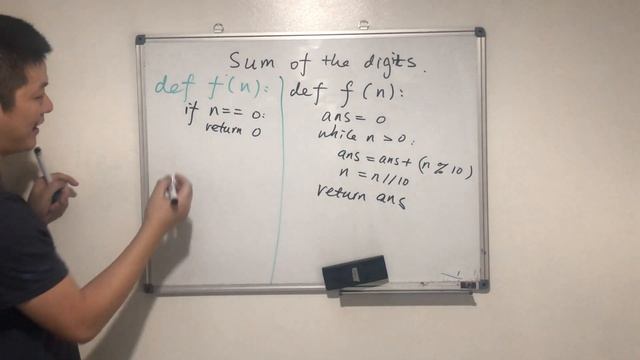 Sum of the digits.
def f(n):
if n == 0:
return 0
def f(n):
ans = 0
while n > 0:
ans = ans + (n % 10)
n = n // 10
return ans